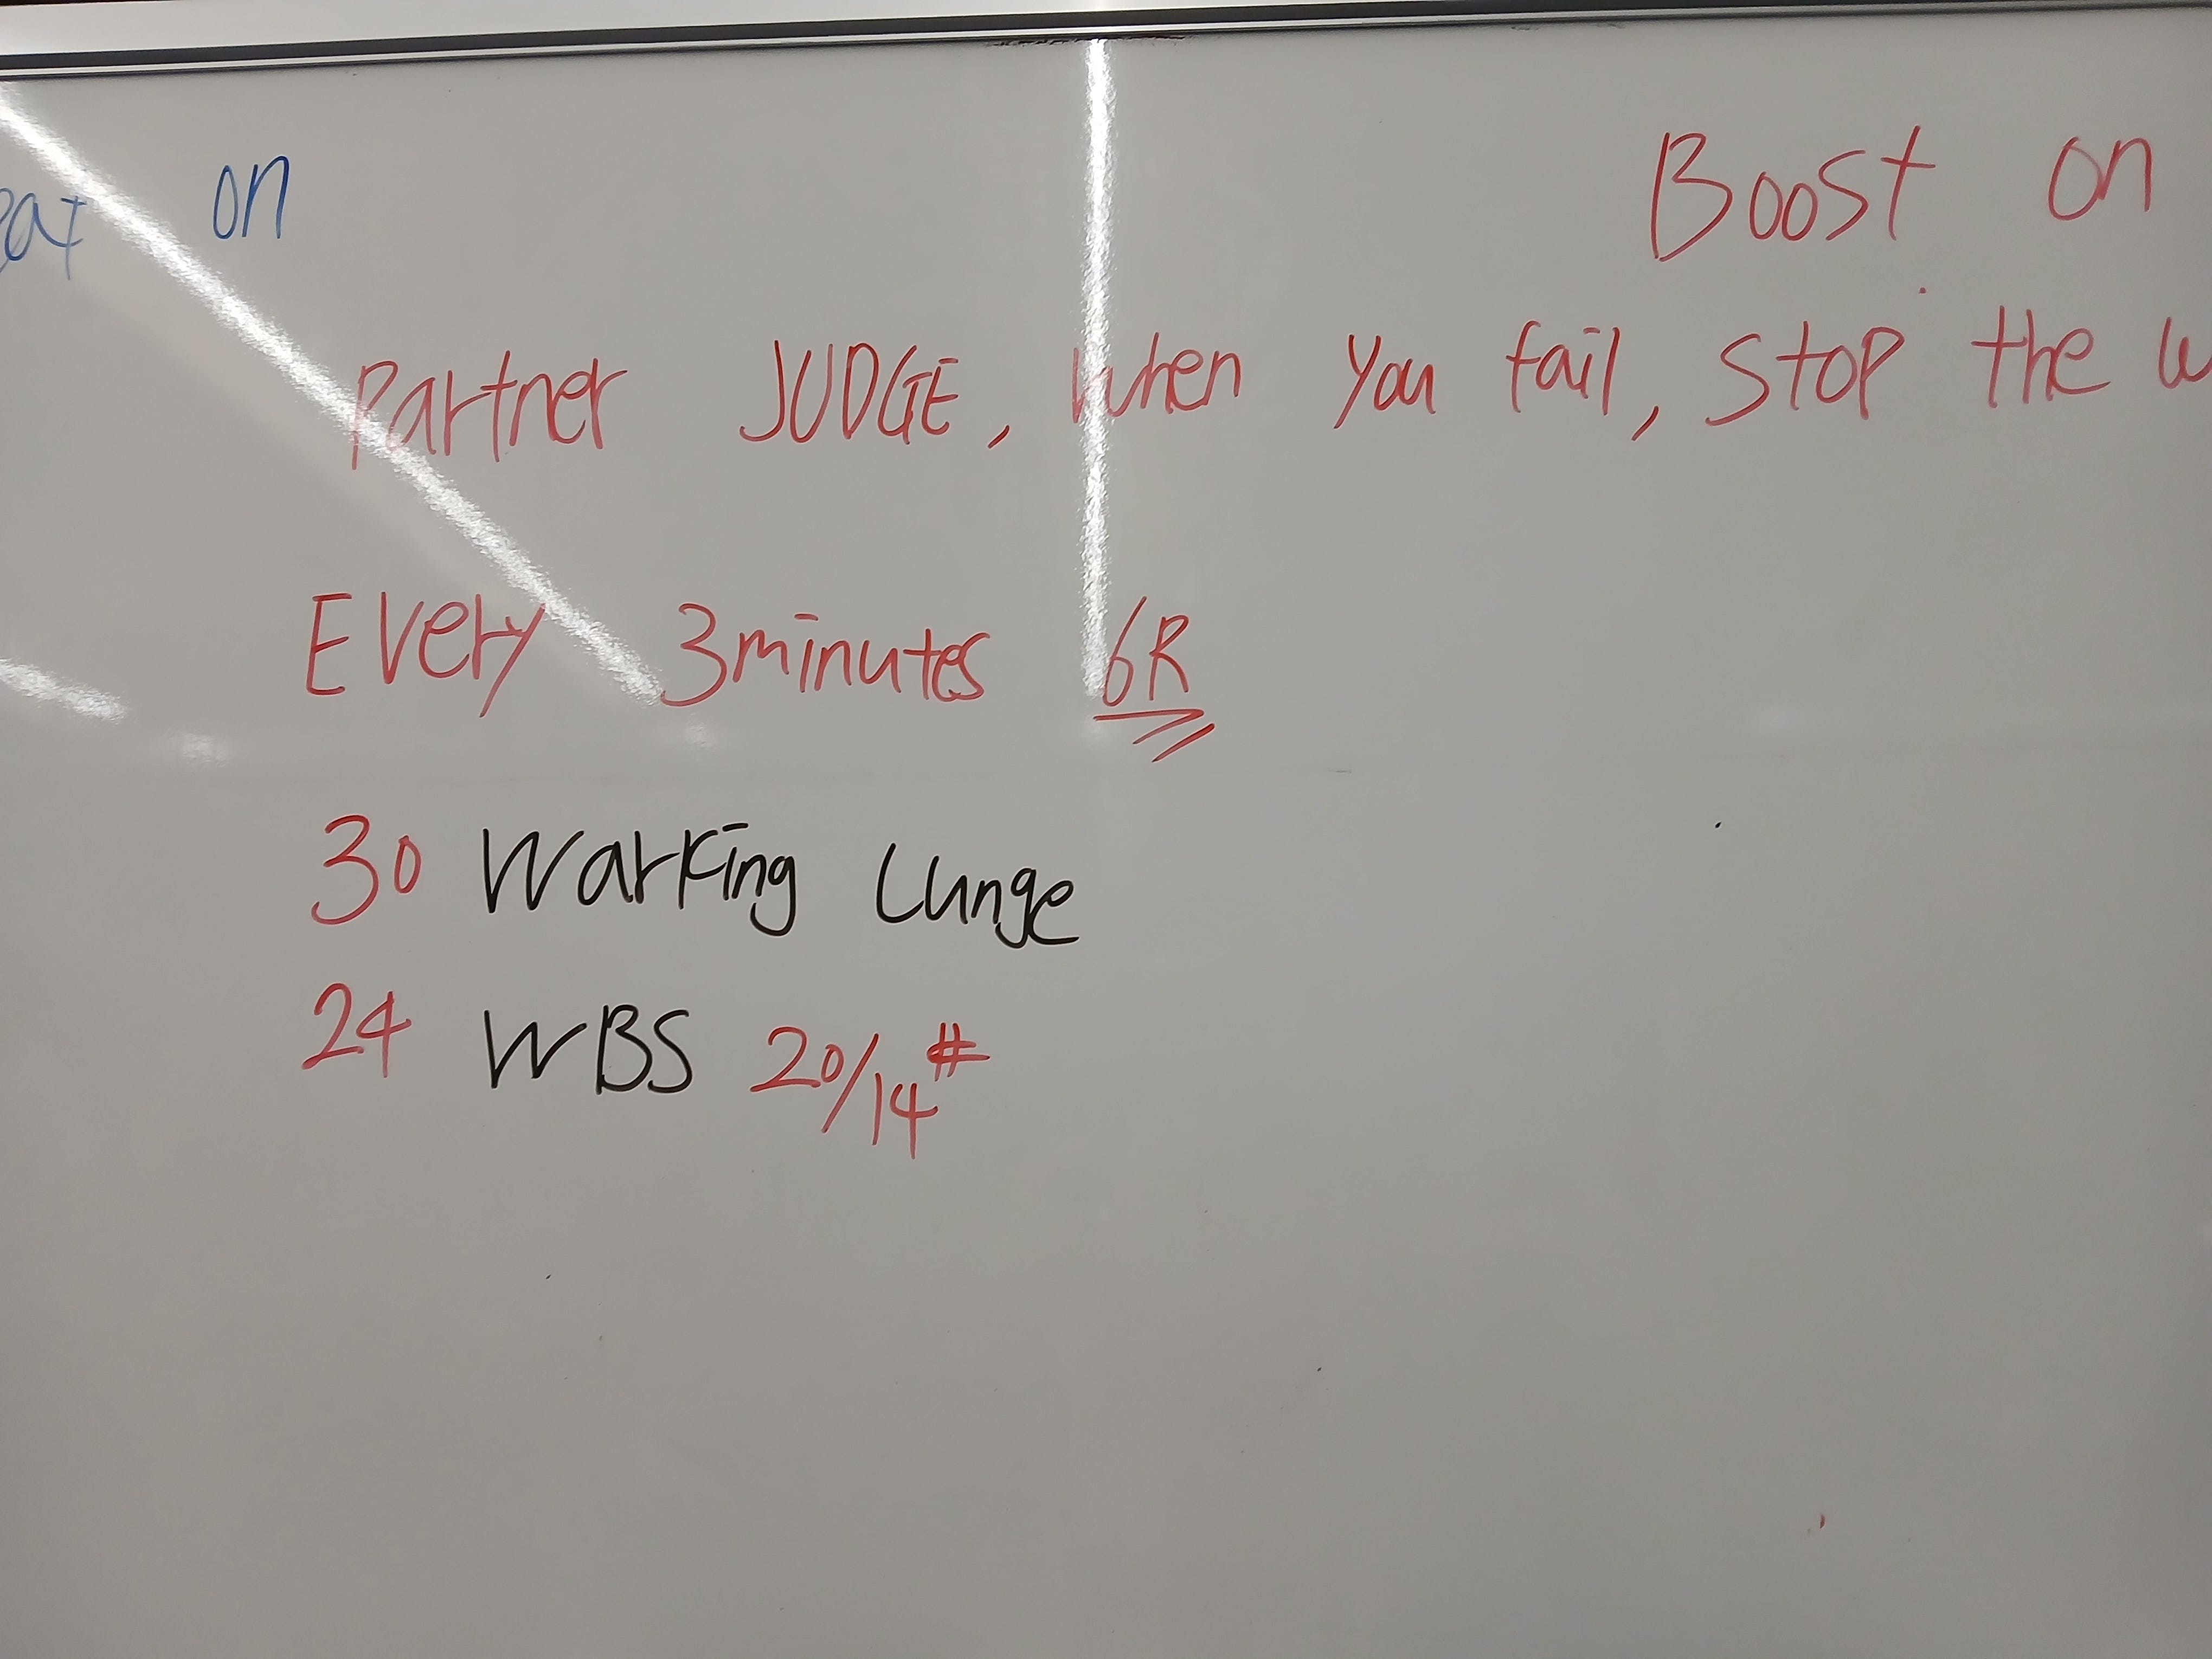 on Boost on
Partner JUDGE, when you fail, stop the
Every 3minutes 6R
30 Warking Lunge
24 WBS 20/14#